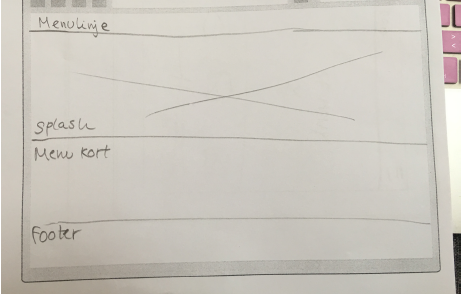 Menulinje
Splash
Menu kort
Footer